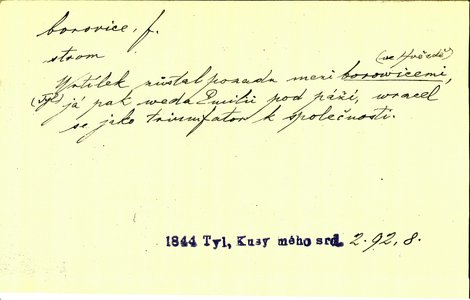 borovice, f.
strom
(ve Hvězdě)
Vrtílek zůstal pozadu mezi borowicemi,
(Tyl) já pak weda Emilii pod páží, wracel
se jako triumfator k společnosti.
1844 Tyl, Kusy mého srd. 2. 92, 8.